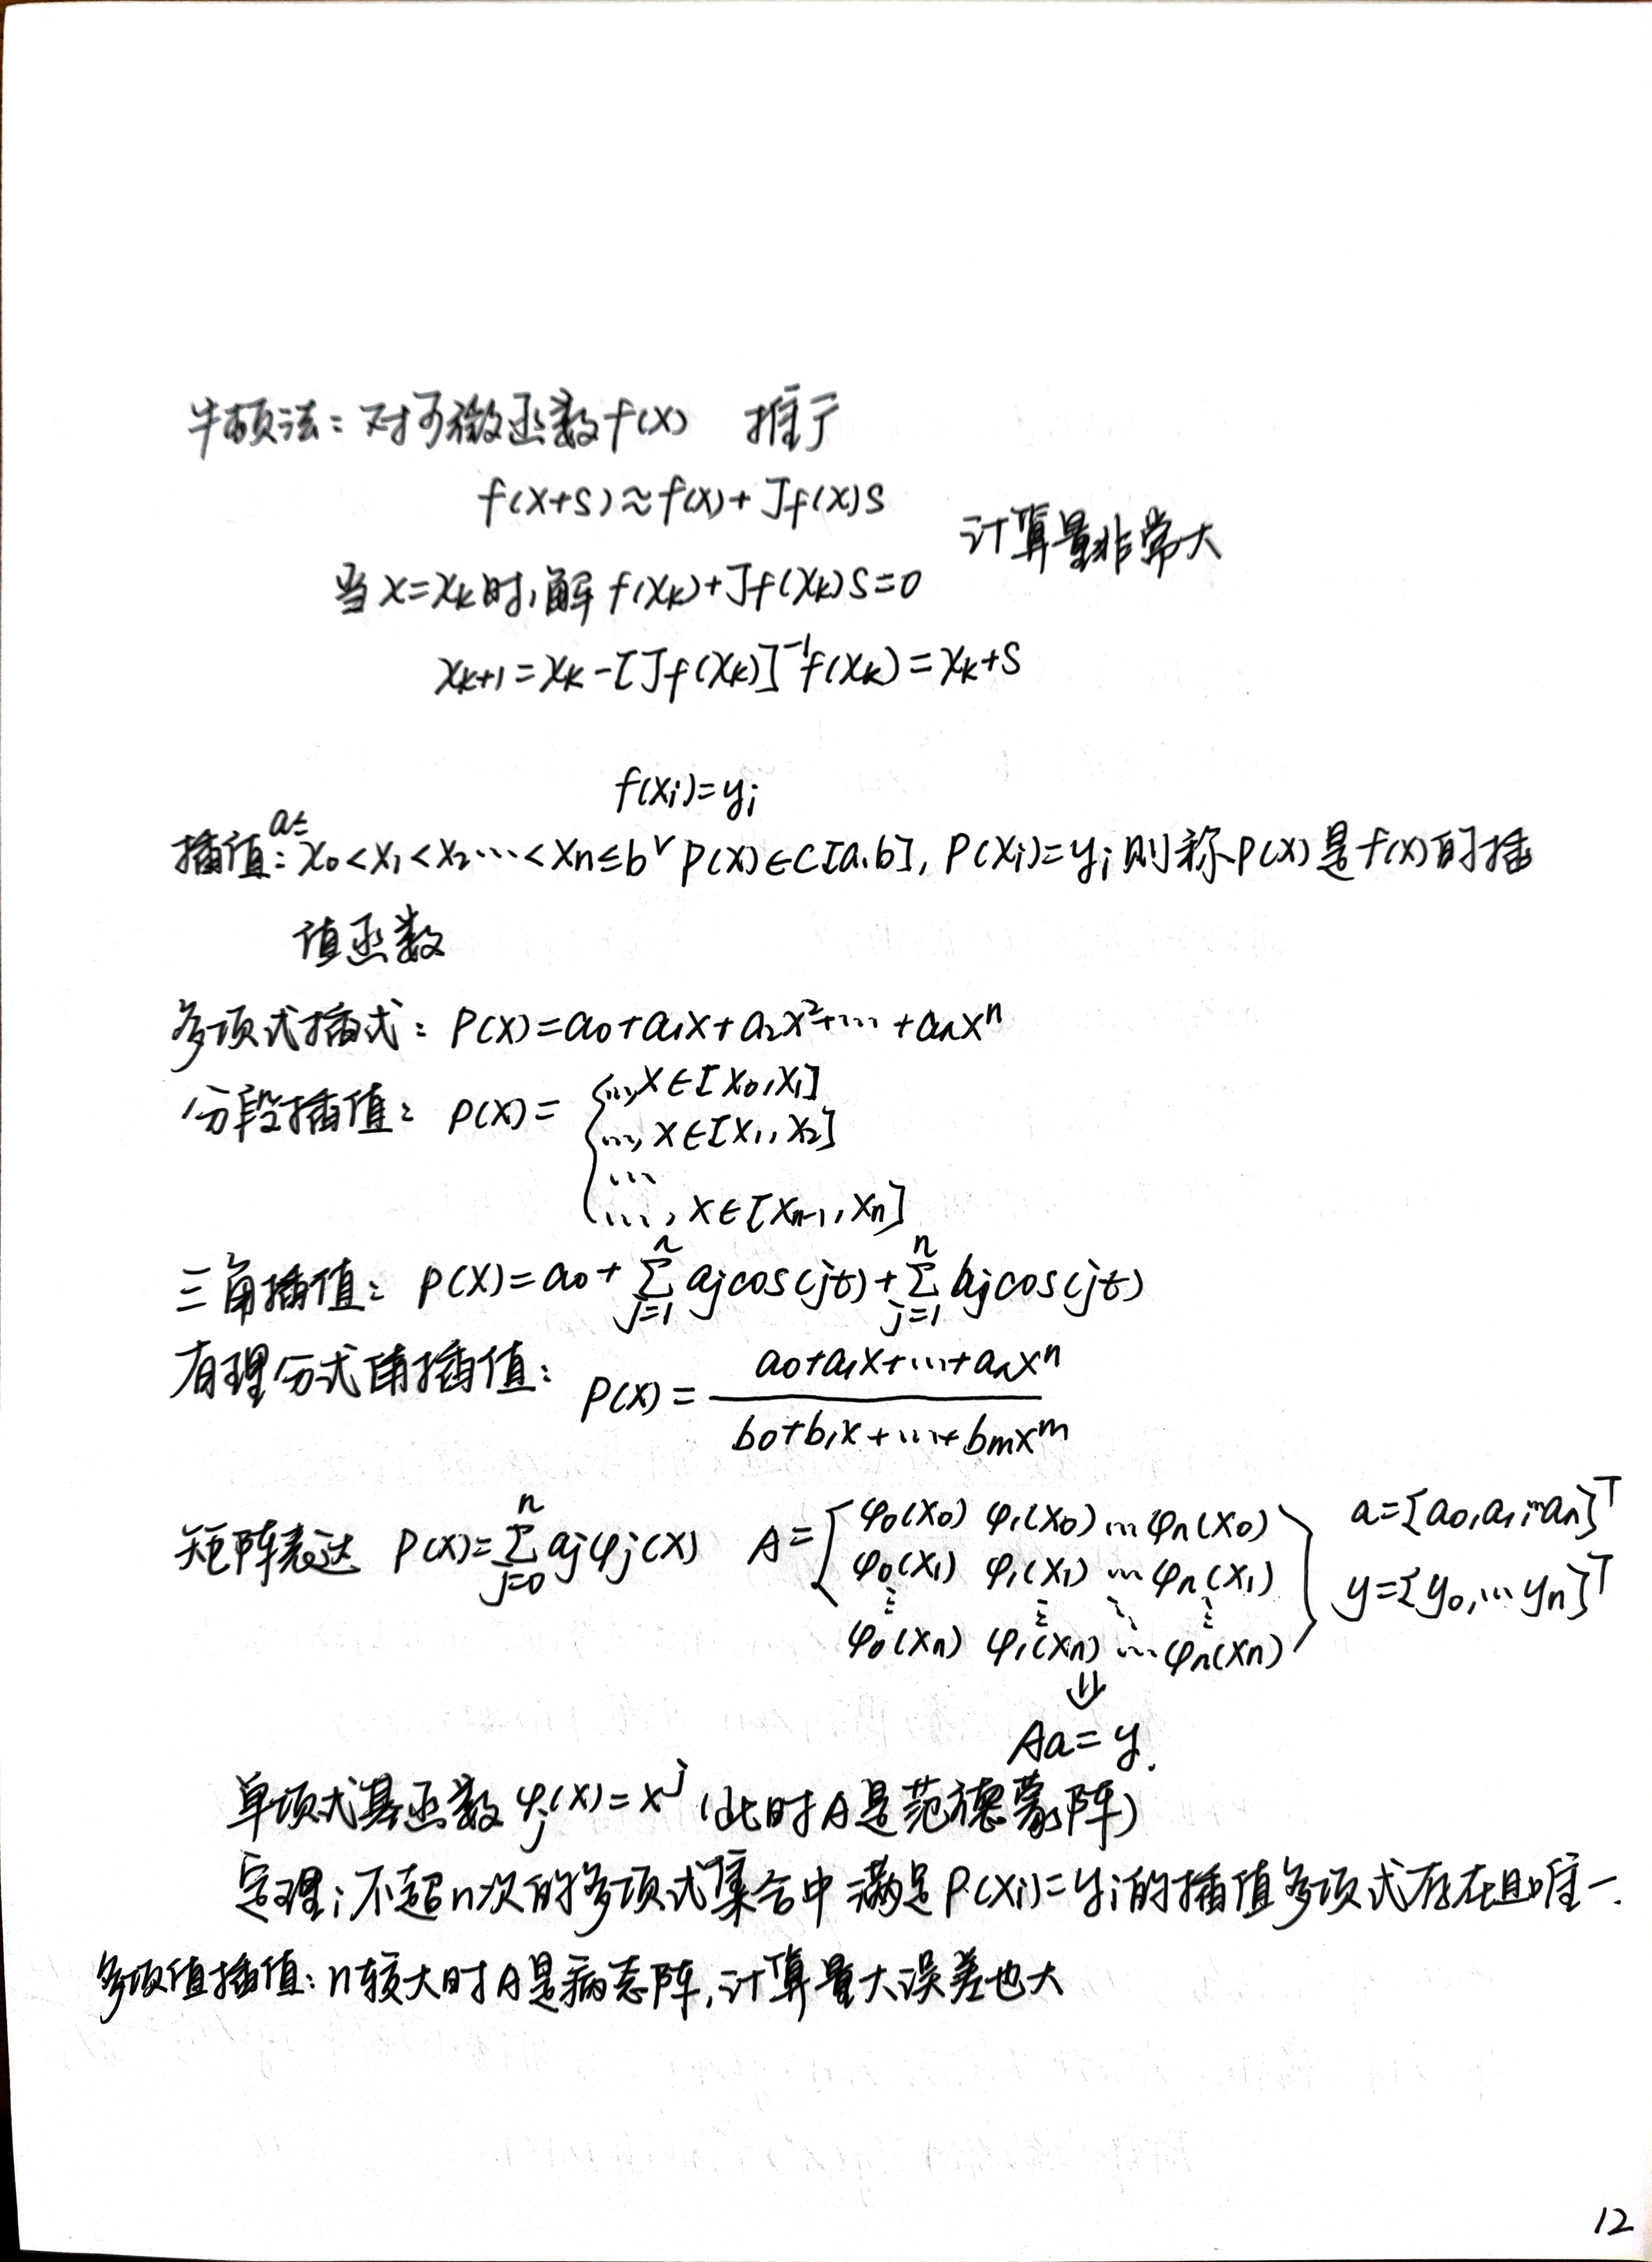 牛顿法：对可微函数f(x) 推广
f(x+s)≈f(x)+Jf(x)s
计算量非常大
当x=xₖ时，解 f(xₖ)+Jf(xₖ)s=0
xₖ₊₁=xₖ-[Jf(xₖ)]⁻¹f(xₖ)=xₖ+s
f(xᵢ)=yᵢ
插值：a≤x₀<x₁<x₂…<xₙ≤b ∨ P(x)∈C[a,b], P(xᵢ)=yᵢ 则称P(x)是f(x)的插
值函数
多项式插式：P(x)=a₀+a₁x+a₂x²+…+aₙxⁿ
分段插值：P(x)= { …, x∈[x₀,x₁]
…, x∈[x₁,x₂]
…
…, x∈[xₙ₋₁,xₙ]
三角插值：P(x)=a₀+∑ⱼ₌₁ⁿ aⱼcos(jt)+∑ⱼ₌₁ⁿ bⱼcos(jt)
有理分式插值：P(x)= (a₀+a₁x+…+aₙxⁿ)/(b₀+b₁x+…+bₘxᵐ)
矩阵表达 P(x)=∑ⱼ₌₀ⁿ aⱼφⱼ(x) A=[ φ₀(x₀) φ₁(x₀) … φₙ(x₀) a=[a₀,a₁,…aₙ]ᵀ
φ₀(x₁) φ₁(x₁) … φₙ(x₁) y=[y₀,…yₙ]ᵀ
⋮ ⋮ ⋱ ⋮
φ₀(xₙ) φ₁(xₙ) … φₙ(xₙ) ]
⇓
Aa=y.
单项式基函数φⱼ(x)=xʲ（此时A是范德蒙阵）
定理；不超n次的多项式集合中满足P(xᵢ)=yᵢ的插值多项式存在且唯一.
多项值插值：n较大时A是病态阵，计算量大误差也大
12